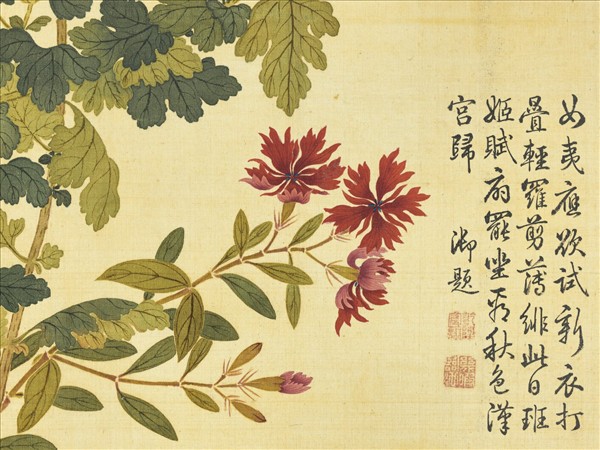 女夷應欲試新衣打
疊輕羅剪薄緋此日班
姬賦扇罷坐看秋色漢
宮歸
御題